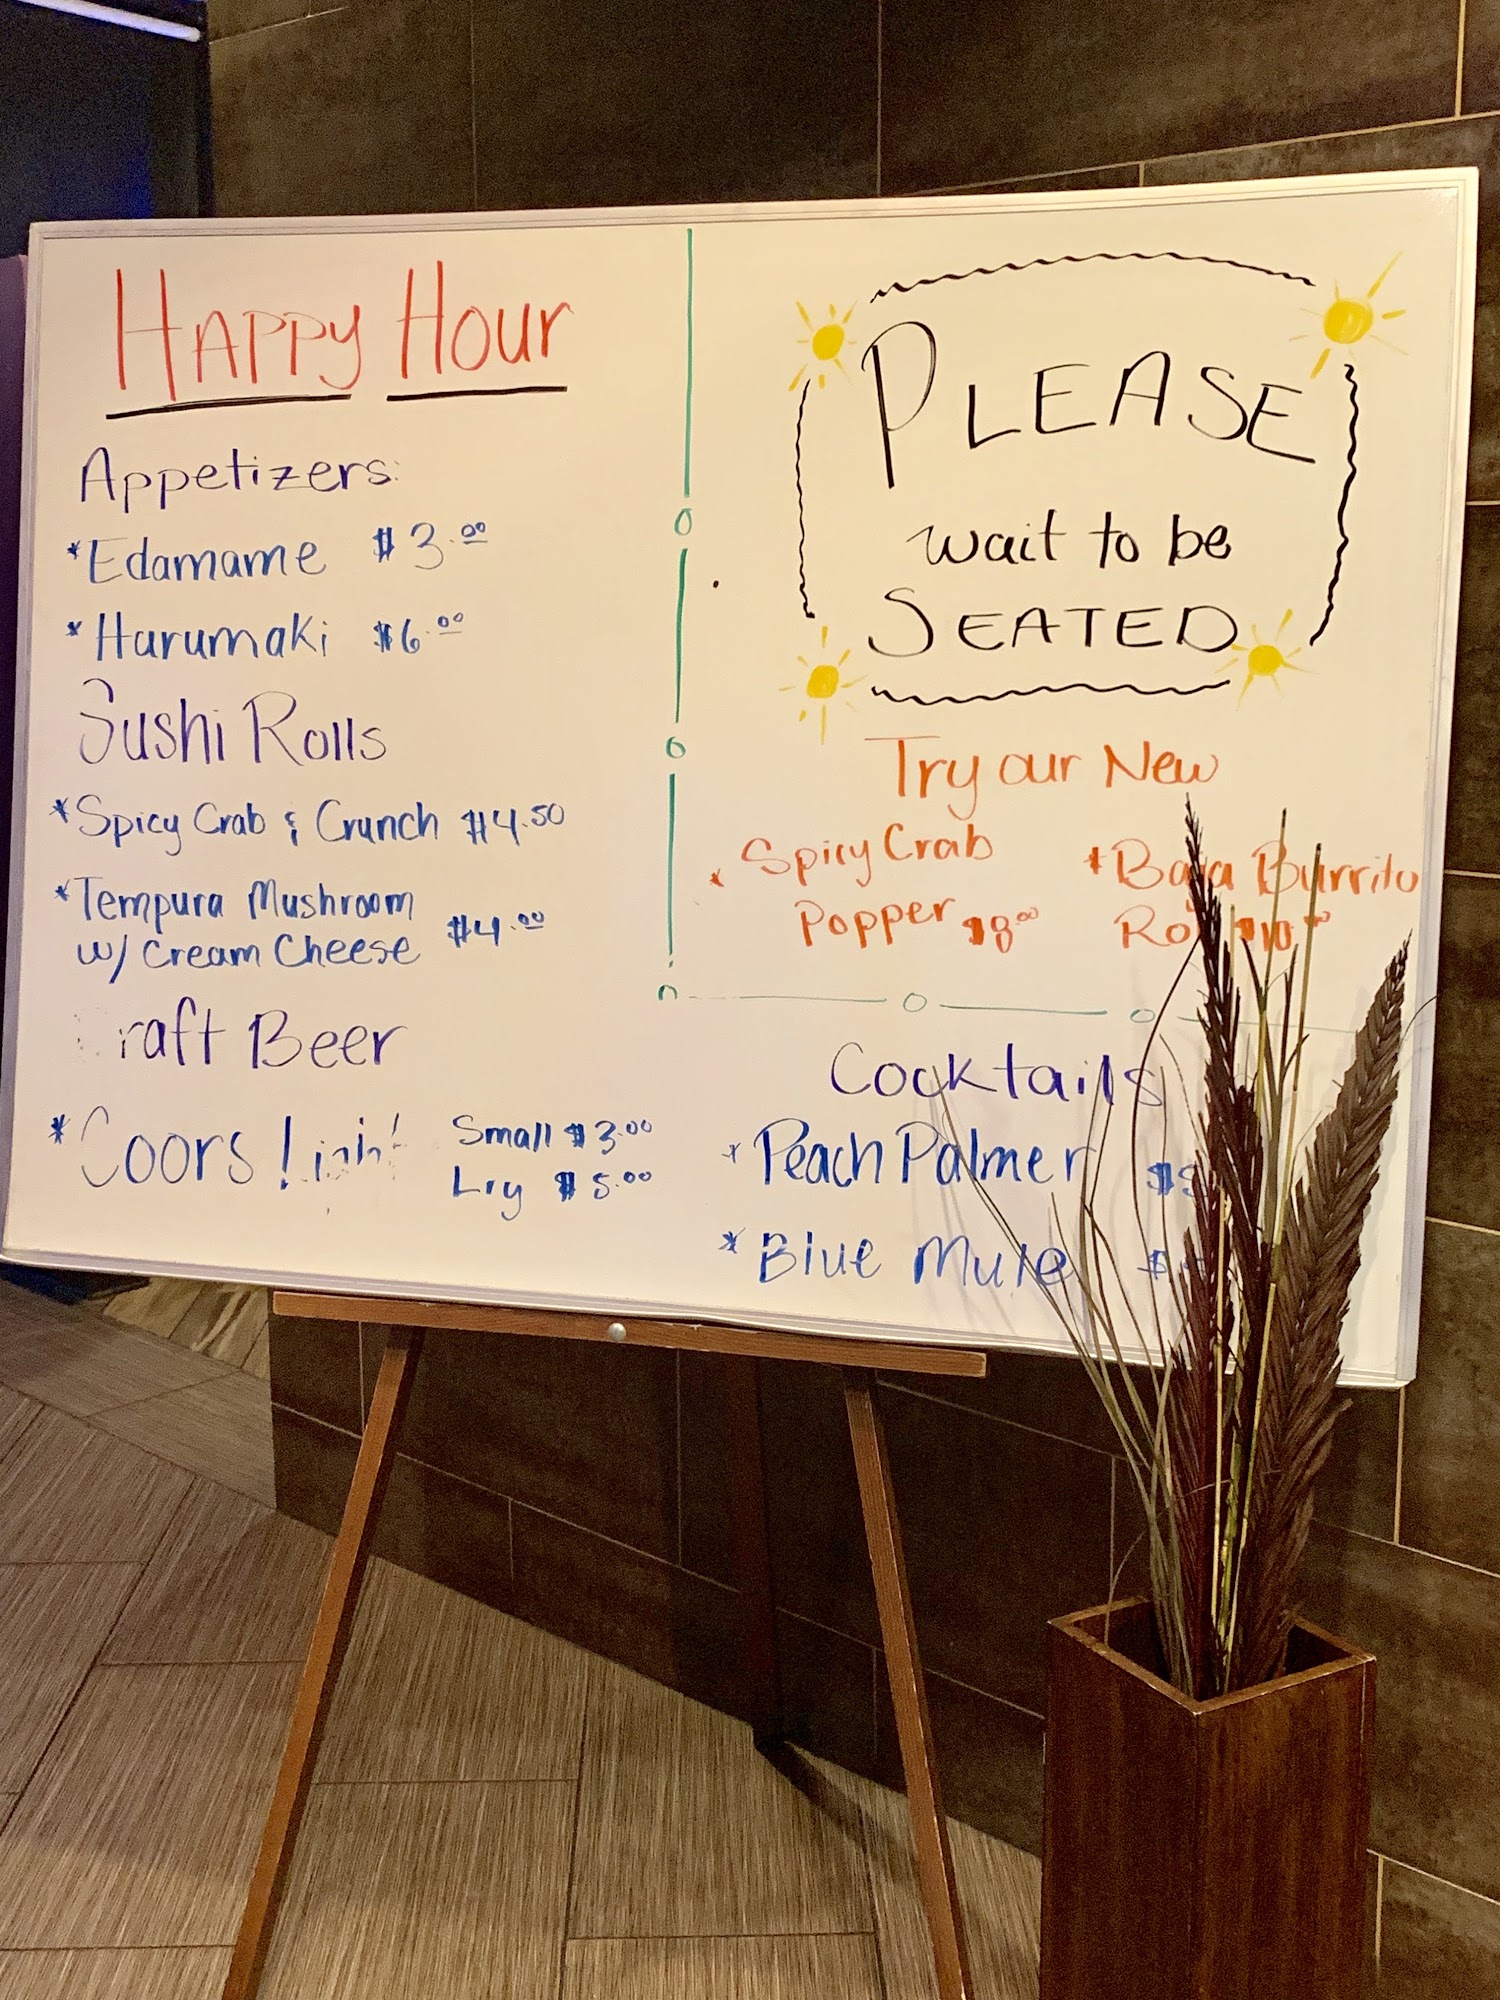 Happy Hour
Appetizers:
*Edamame $3.00
*Harumaki $6.00
Sushi Rolls
*Spicy Crab & Crunch $4.50
*Tempura Mushroom
w/ Cream Cheese $4.00
raft Beer
*Coors Light
Small $3.00
Lrg $5.00
PLEASE
wait to be
SEATED
Try our New
*Spicy Crab
Popper $8.00
*Baja Burrito
Ro $10.00
Cocktails
*Peach Palmer
*Blue Mule